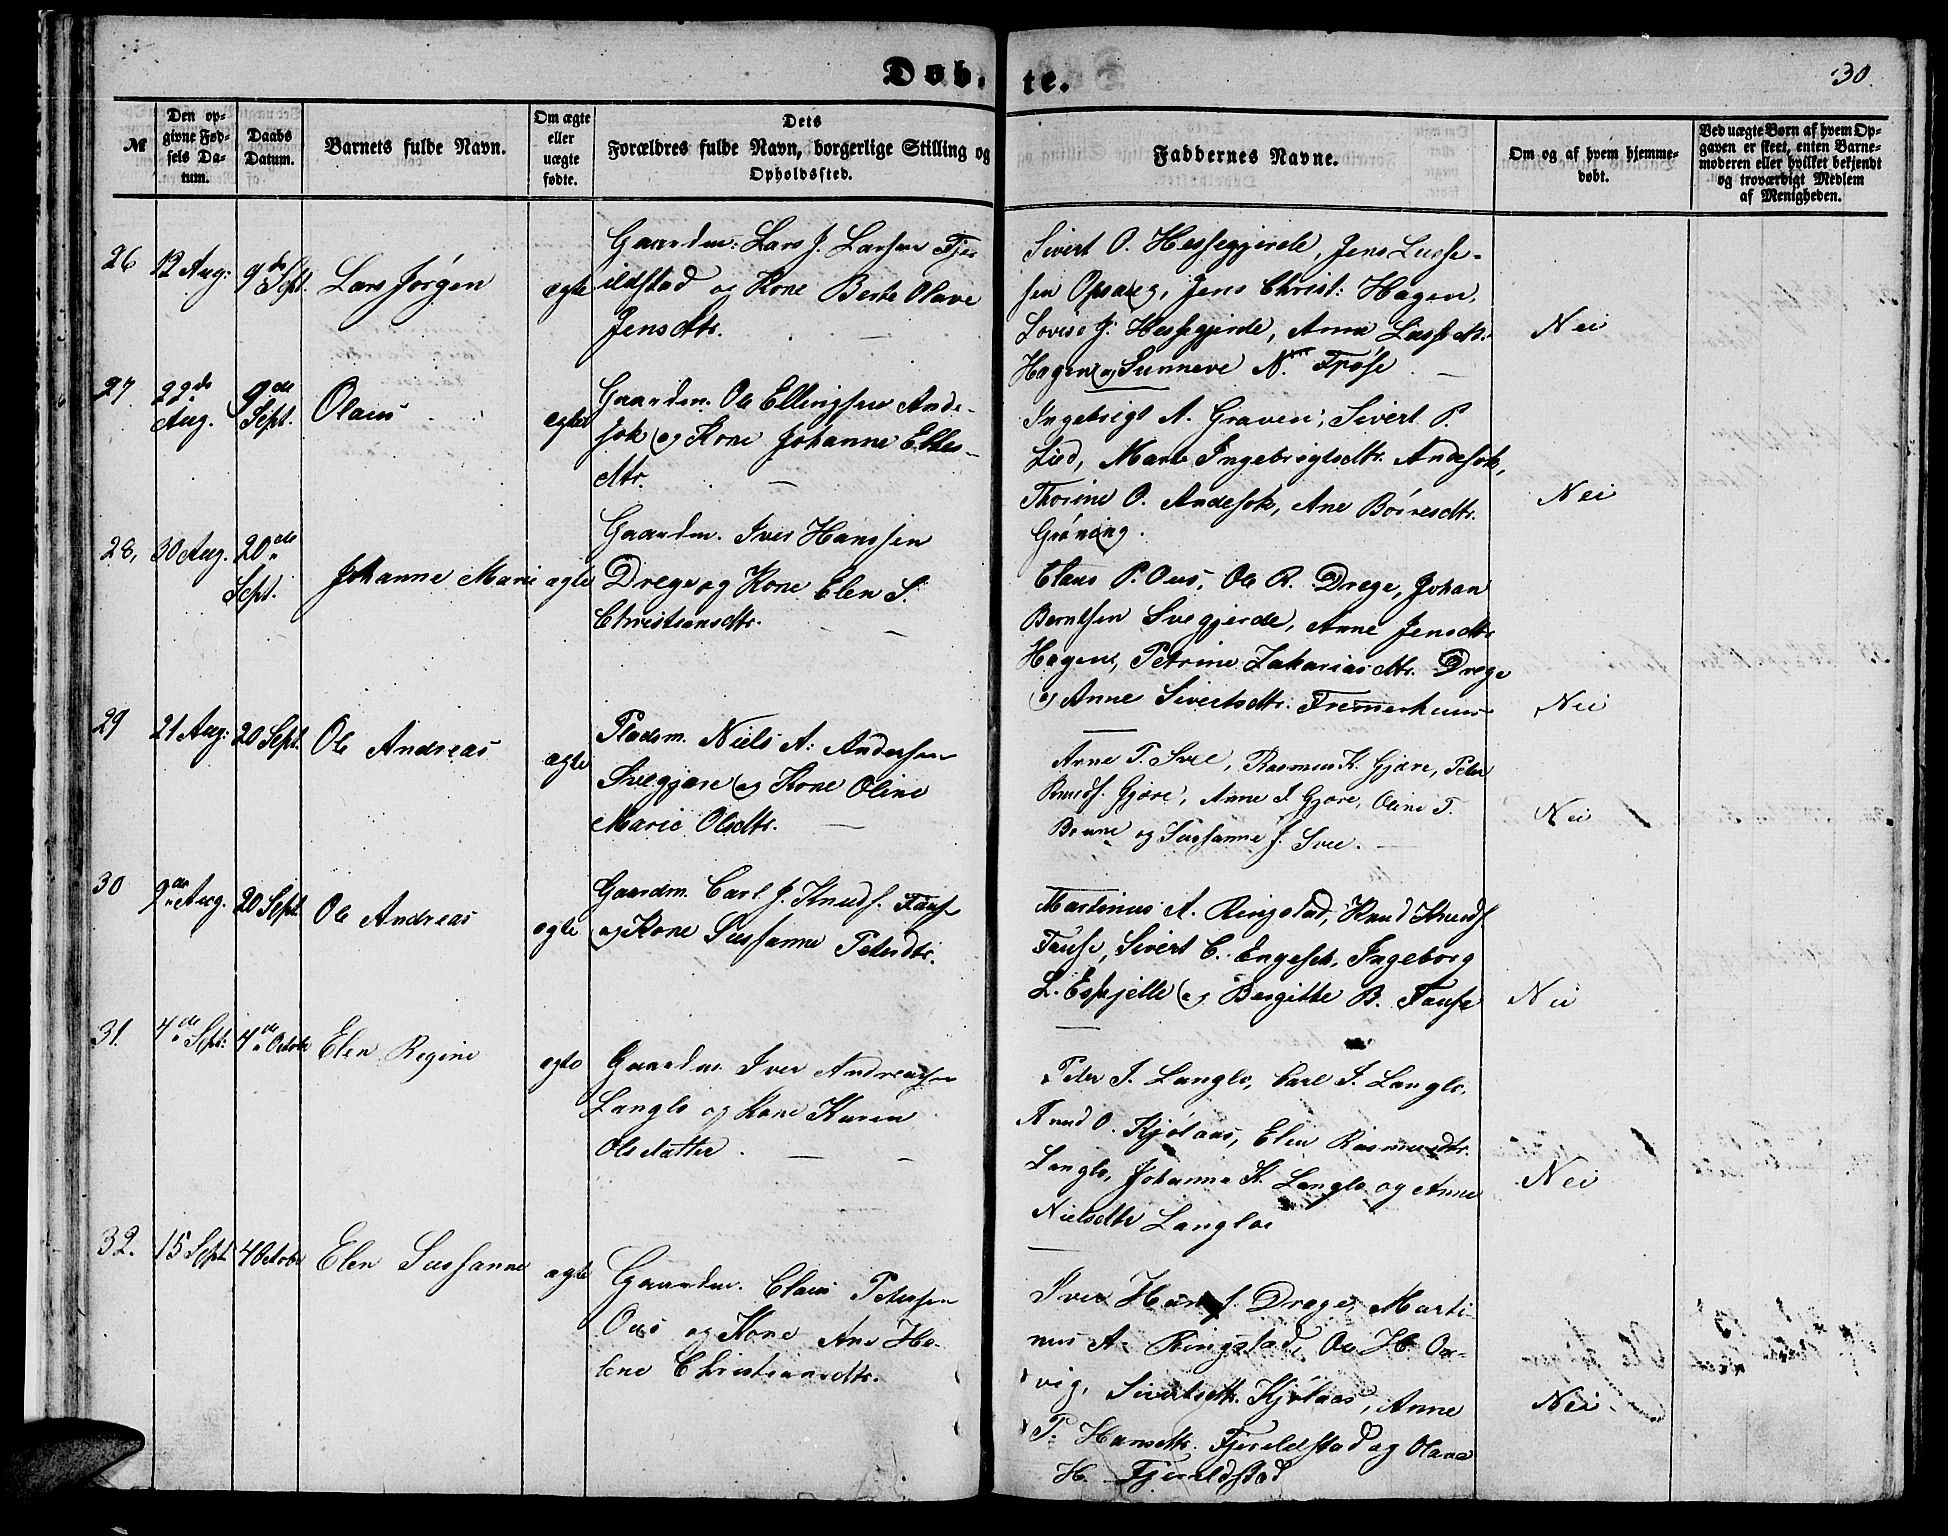 Døb-
te.
30.
№
Den op-
givne Fød-
sels Da-
tum.
Daabs
Datum.
Barnets fulde Navn.
Om ægte
eller
uægte
fødte.
Dets
Forældres fulde Navn, borgerlige Stilling og
Opholdssted.
Faddernes Navne.
Om og af hvem hjemme-
døbt.
Ved uægte Børn af hvem Op-
gaven er skeet, enten Barne-
moderen eller hvilket bekjendt
og troværdigt Medlem
af Menigheden.
26
12 Aug:
9de Sept.
Lars Jørgen
ægte
Gaardm: Lars J. Larsen Fje-
ildstad og Kone Berte Olave
Jensdtr.
Sivert O. Hessegjerde, Jens Lasse-
sen Opsang, Jens Christ: Hagen,
Lovise J. Hessegjerde, Anna Lassedtr.
Hagen og Sunneve N. Frøse
Nei
27
22de
Aug.
9de
Sept.
Olaus
ægte
Gaardm. Ole Ellingsen Ande-
sok og Kone Johanne Ebbes-
dtr.
Ingebrigt A. Graven, Sivert P.
Lied, Marte Ingebrigtsdtr. Andesok,
Thorine O. Andesok, Ane Børresdtr.
Grøning.
Nei
28,
30 Aug.
20de
Sept.
Johanne Marie
ægte
Gaardm. Iver Hanssen
Drege og Kone Elen S.
Christiansdtr.
Claus P. Ous, Ole R. Drege, Johan
Berntsen Svegjerde, Anne Jensdtr
Hagen, Petrine Zakariasdtr. Drege
og Anne Sivertsdtr. Fremerhuus
Nei
29
21 Aug:
20 Sept.
Ole Andreas
ægte
Pladsm. Niels A. Andersen
Svegjære og Kone Oline
Marie Olsdtr.
Arne T. Svee, Rasmus K. Gjære, Peter
Knuds. Gjære, Anne J. Gjære, Oline T.
Brune og Sussanne J. Svee.
Nei
30
9de Aug.
20 Sept
Ole Andreas
ægte
Gaardm. Carl J. Knuds. Fause
og Kone Sussanne Petersdtr.
Martinus A. Ringstad, Knud Knuds.
Fause, Sivert C. Engeset, Ingeborg
L. Eskjelle og Bergitte B. Fause
Nei
31.
4de Sept:
4de Octobr
Elen Regine
ægte
Gaardm. Iver Andreassen
Langlo og Kone Karen
Olsdatter.
Peter I. Langlo, Carl I. Langlo,
Knud O. Kjølaas, Elen Rasmusdtr.
Langlo, Johanne K. Langlo og Anne
Nielsdtr Langloe
Nei
32.
15 Sept.
4 Octobr
Elen Sussanne
ægte
Gaardm. Claus Petersen
Ous og Kone Ane He-
lene Christiansdtr.
Iver Hans. Drege, Marti-
nus A. Ringstad, Ole H. Or-
vig, Sivertsdtr. Kjølaas, Anne
P. Hansdtr. Fjeeldstad og Olave
H. Fjeeldstad
Nei